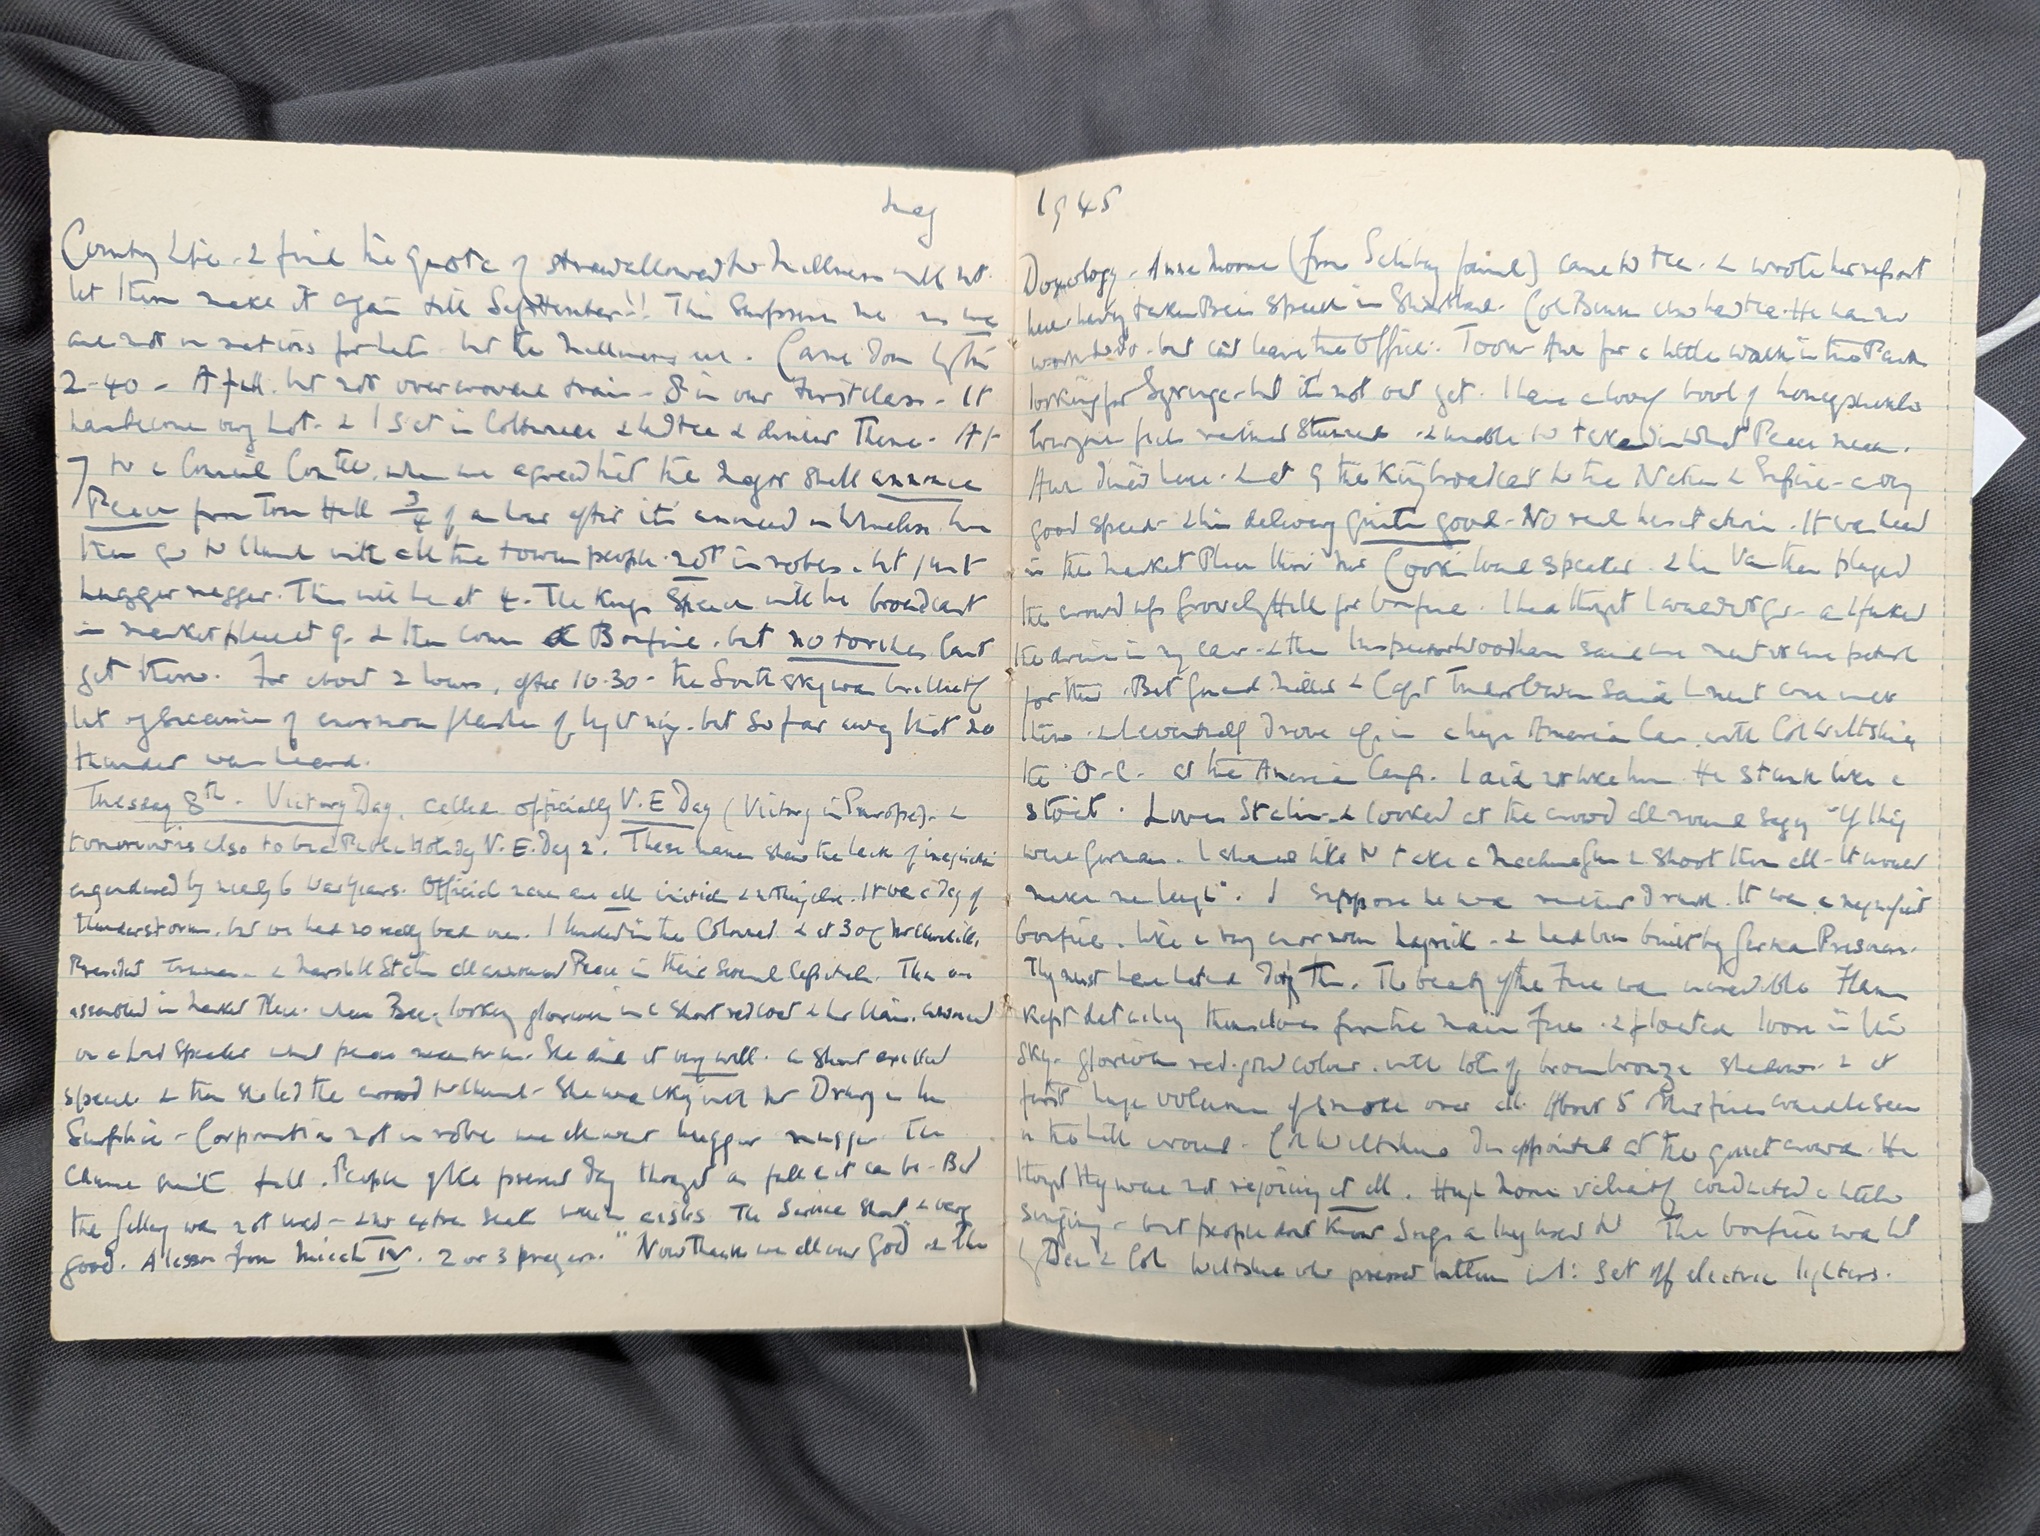 May
Country Life - & find the quota of straw allowed to milliners will not
let them make it again till September!! This surprises me as we
are not on rations for hats but the milliners are. Came down by the
2-40 - A full but not overcrowded train - 8 in our First Class - It
had become very hot - & I sat in Colonnade & had tea & dinner there - At
7 to a Council Comttee, when we agreed that the Mayor shall announce
Peace from Town Hall 3/4 of an hour after it's announced on Wireless. We
then go to Church with all the towns people not in robes - but just
hugger mugger. This will be at 4. The Kings Speech will be broadcast
in market place at 9 - & then comes a Bonfire, but no torches Cant
get them. For about 2 hours, after 10-30 - the South sky was brilliantly
lit by succession of enormous flashes of lightning - but so far away that no
thunder was heard.
Tuesday 8th - Victory Day, called officially V.E Day (Victory in Europe) - &
tomorrow is also to be a Public Holiday V.E. Day 2. These names show the lack of imagination
engendered by nearly 6 War years. Official names are all initials & nothing else. It was a day of
thunderstorms, but we had no really bad one. I lunched in the Colonnad & at 3 o'c Mr Churchill,
President Truman - & Marshall Stalin all announced Peace in their several Capitals. Then we
assembled in Market Place - when Bee, looking glorious in a short red coat & her Chain, announced
on a loud speaker what peace meant to us. She did it very well - a short excellent
speech & then she led the crowd to Church - She walking with Mr Drury in his
Surplice - Corporation not in robes we all went hugger mugger The
Church quite full. People of the present day thought as full as it can be - But
the gallery was not used - & no extra seats down aisles The Service short & very
good. A lesson from Micah IV. 2 or 3 prayers. "Now thank we all our God" & the
1945
Doxology - Anne Moore (from Salisbury Journal) came to tea - & wrote her report
here having taken Bee's speech in Shorthand. Col Benson also had tea. He has no
work to do - but cant leave the Office. Took Anne for a little walk in the Park
looking for Syringa - but it's not out yet. I have a lovely bowl of honeysuckle
Everyone feels rather Stunned - & unable to take in what Peace means.
Anne dined here - & at 9 the King broadcast to the Nation & Empire - a very
good speech - & his delivery quite good - No real hesitation. It was heard
in the Market Place thro' Mr loud speaker - & his Van then played
the crowd up Grovely Hill for bonfire. I had thought I wouldn't go - as I faked
the drive in my car - & then Inspector Woodham said we must not use petrol
for this. But Miller & Capt Tudor Owen said I must come with
them - & I eventually drove up in a huge American Car with Col Wiltshire
the O-C- at the American Camp. I did not like him. He stank like a
stoat. Loves Stalin - & looked at the crowd all round saying "If they
were German. I should like to take a Machine Gun & shoot them all - It would
make me laugh". I suppose he was rather drunk. It was a magnificent
bonfire - like a very enormous hayrick - & had been built by German Prisoners.
They must have hated doing this. The beauty of the Fire was incredible Flames
kept detaching themselves from the main Fire - & floated loose in the
sky - glorious red-gold colour - with lots of brown bronze shadows - & at
first huge volumes of smoke over all. About 5 other fires could be seen
on the hills around - Col Wiltshire disappointed at the quiet crowd. He
thought they were not rejoicing at all. Hugh Moore valiantly conducted a little
singing - but people dont know Songs as they used to The bonfire was lit
by Dee & Col Wiltshire who pressed buttons wh: set off electric lighters.